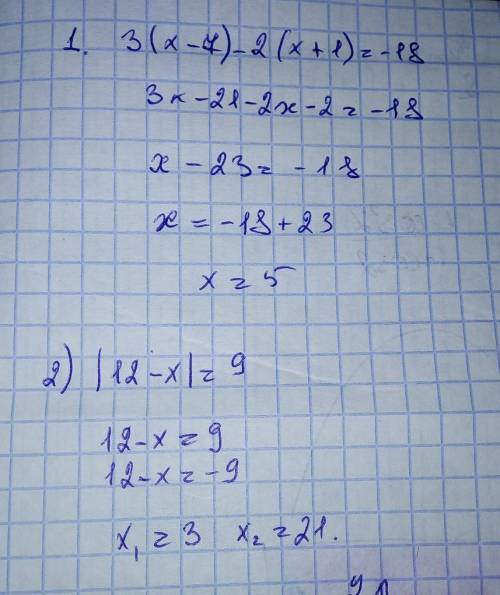 1. 3(x-7)-2(x+1)=-18
3x-21-2x-2=-18
x-23=-18
x=-18+23
x=5
2) |12-x|=9
12-x=9
12-x=-9
x₁=3 x₂=21.